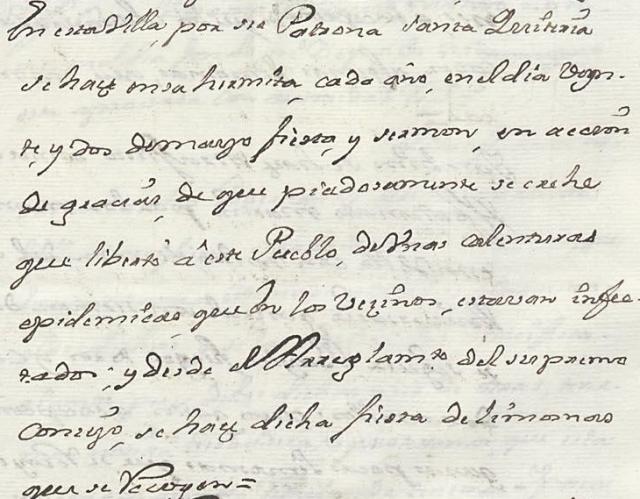 En esta Villa, por su Patrona Santa Quitteria
se haze en su hermita, cada año, en el dia veyn-
te, y dos de mayo fiesta, y sermon, en accion
de gracias, de que piadosamente se crehe
que libertò â este Pueblo, de Unas calenturas
epidemicas, que en los vezinos, estavan infec-
tados; y desde el Arreglamto del supremo
Consejo, se haze dicha fiesta de limosnas
que se Recogen=